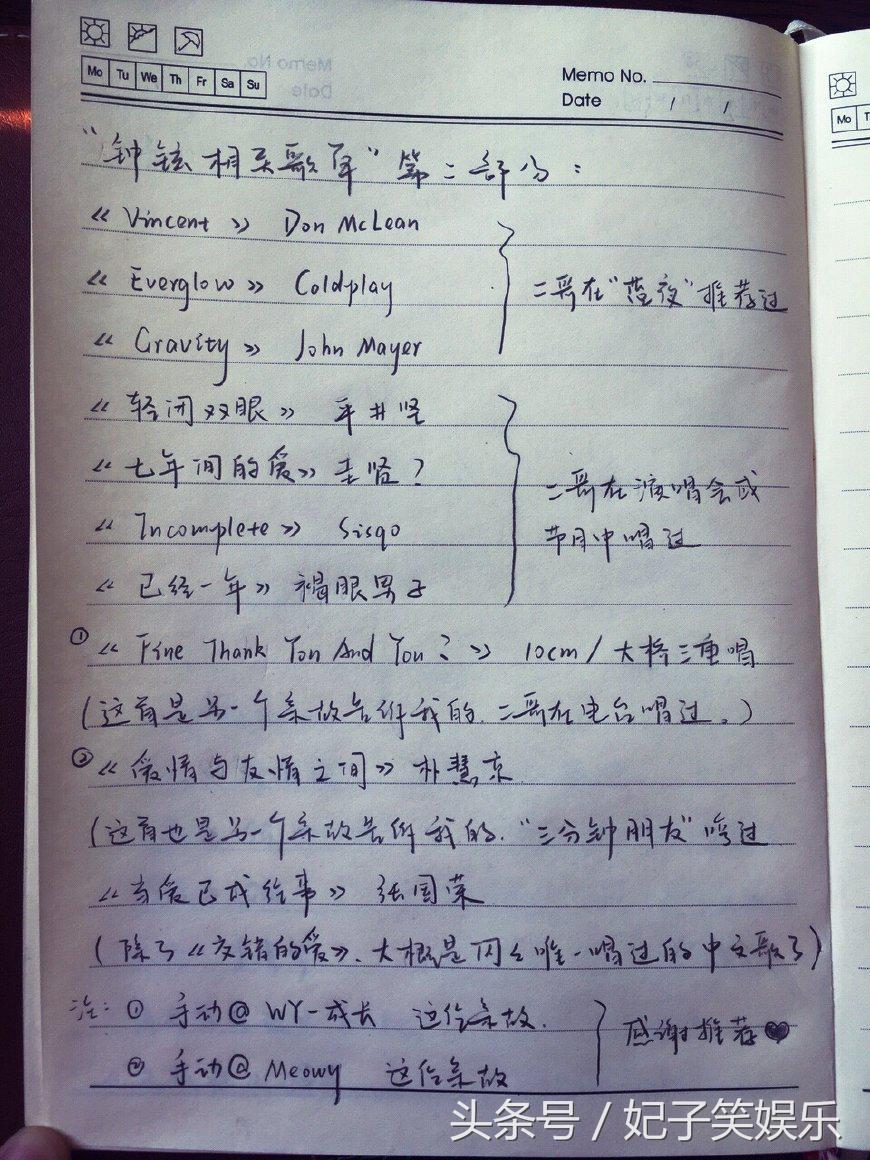 Mo Tu We Th Fr Sa Su
Memo No.
Date / /
"钟铉相关歌单"第二部分:
《Vincent》 Don McLean
《Everglow》 Coldplay
《Gravity》 John Mayer
二哥在"蓝夜"推荐过
《轻闭双眼》 平井坚
《七年间的爱》圭贤?
《Incomplete》 Sisqo
《已经一年》褐眼男子
二哥在演唱会或
节目中唱过
①《Fine Thank You And You?》 10cm/大桥三重唱
(这首是另一个亲故告诉我的.二哥在电台唱过。)
②《爱情与友情之间》朴慧京
(这首也是另一个亲故告诉我的."三分钟朋友"哼过
《当爱已成往事》 张国荣
(除了《交错的爱》、大概是囧囧唯一唱过的中文歌了)
注: ① 手动@ WY-成长 这位亲故.
② 手动@ Meowy 这位亲故
感谢推荐♥
Mo T
头条号 / 妃子笑娱乐